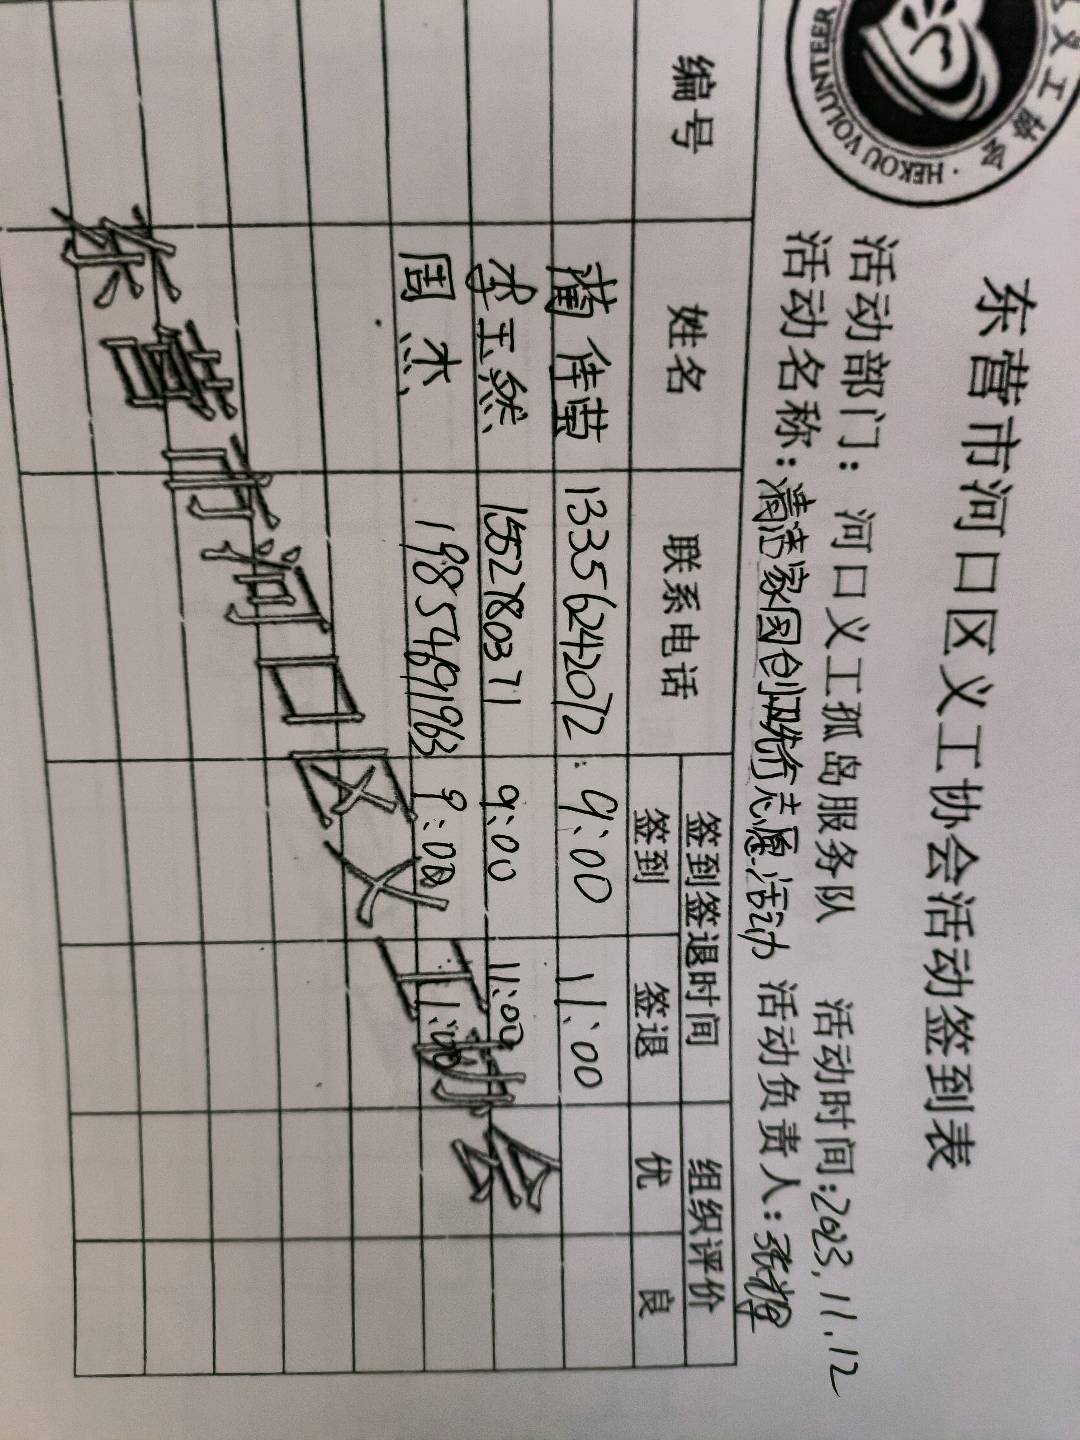 义工协会
HEKOU VOLUNTEER
东营市河口区义工协会活动签到表
活动部门：河口义工孤岛服务队 活动时间:2023.11.12
活动名称：清洁家园创城先行志愿活动 活动负责人：张辉
编号 姓名 联系电话 签到签退时间 组织评价
签到 签退 优 良
蒲佳莹 13356242072 9:00 11:00
李玉然 15527803 71 9:00 11:00
周杰 19854691963 9:00 11:00
东营市河口区义工协会